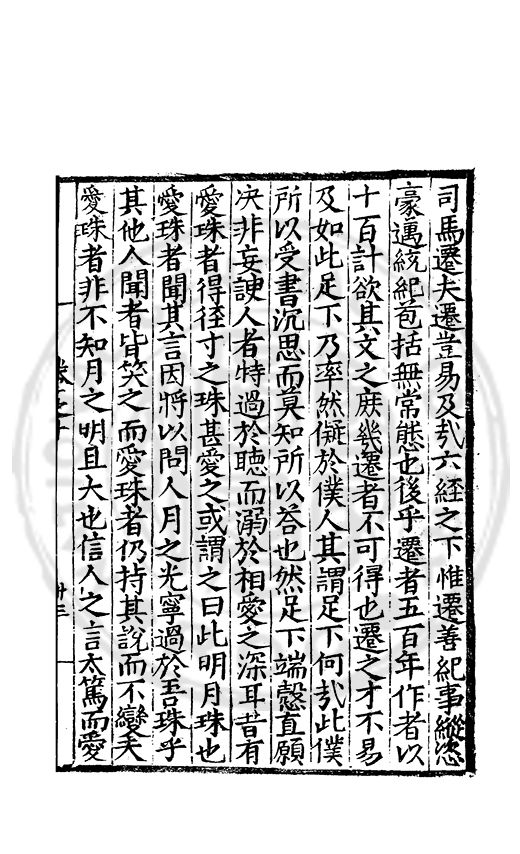 司馬遷夫遷豈易及㢤六經之下惟遷善紀事縱恣
豪邁統紀苞括無常態也後乎遷者五百年作者以
十百計欲其文之庶㡬遷者不可得也遷之才不易
及如此足下乃率然儗於僕人其謂足下何㢤此僕
所以受書沉思而莫知所以荅也然足下端慤直願
决非妄諛人者特過於聽而溺於相愛之深耳昔有
愛珠者得徑寸之珠甚愛之或謂之曰此明月珠也
愛珠者聞其言因將以問人月之光寧過於吾珠乎
其他人聞者皆笑之而愛珠者仍持其說而不變夫
愛珠者非不知月之明且大也信人之言太篤而愛
卷之十
廿三